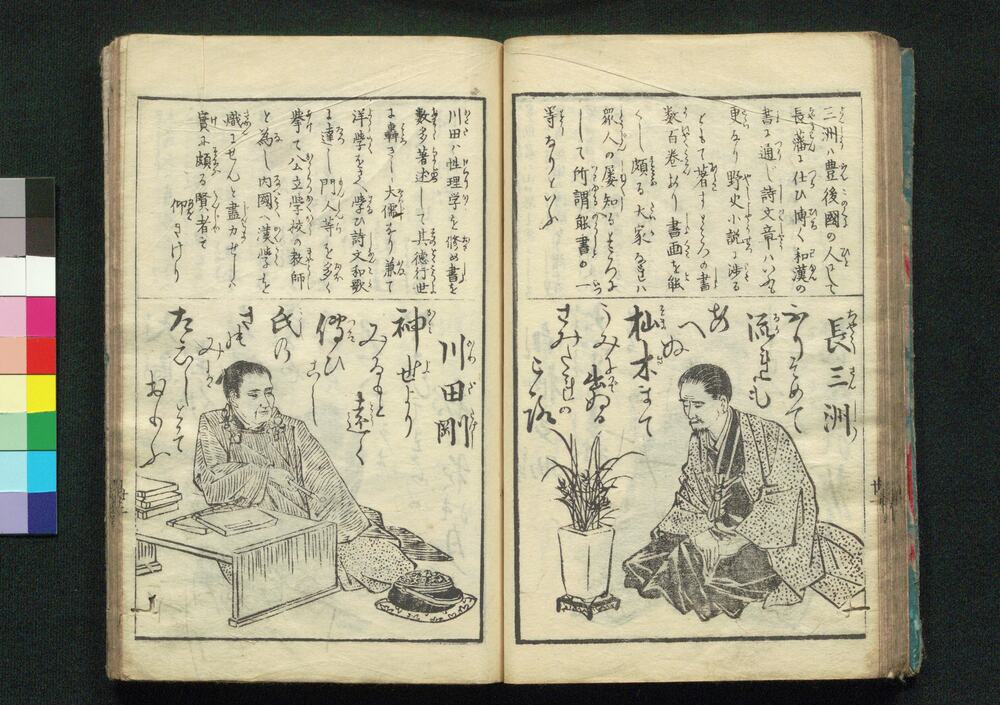 三洲ハ豊後國の人にて
長藩に仕ひ博く和漢の
書に通じ詩文章ハいふも
更なり野史小説に渉る
ともて著すところの書
数百巻あり書画を能
くし頗る大家なれバ
衆人の屡知るところに
して所謂能書の一
等なりといふ
長三洲
ふりそめて
流れも
あ
へぬ
杣木まで
うみに出ぬる
さみだれの
ころ
川田ハ性理学を修め書を
数多著述して其徳行世
に轟きし大儒なり兼て
洋學をさへ学ひ詩文和歌
に達し門人等を多く
挙て公立学校の教師
と為し内國へ漢學を
熾にせんと盡力せしハ
實に頗る賢者と
仰きけり
川田剛
神世より
みるめも遠く
傳ひこし
氏の
さかみを
たゝしとて
おもふ